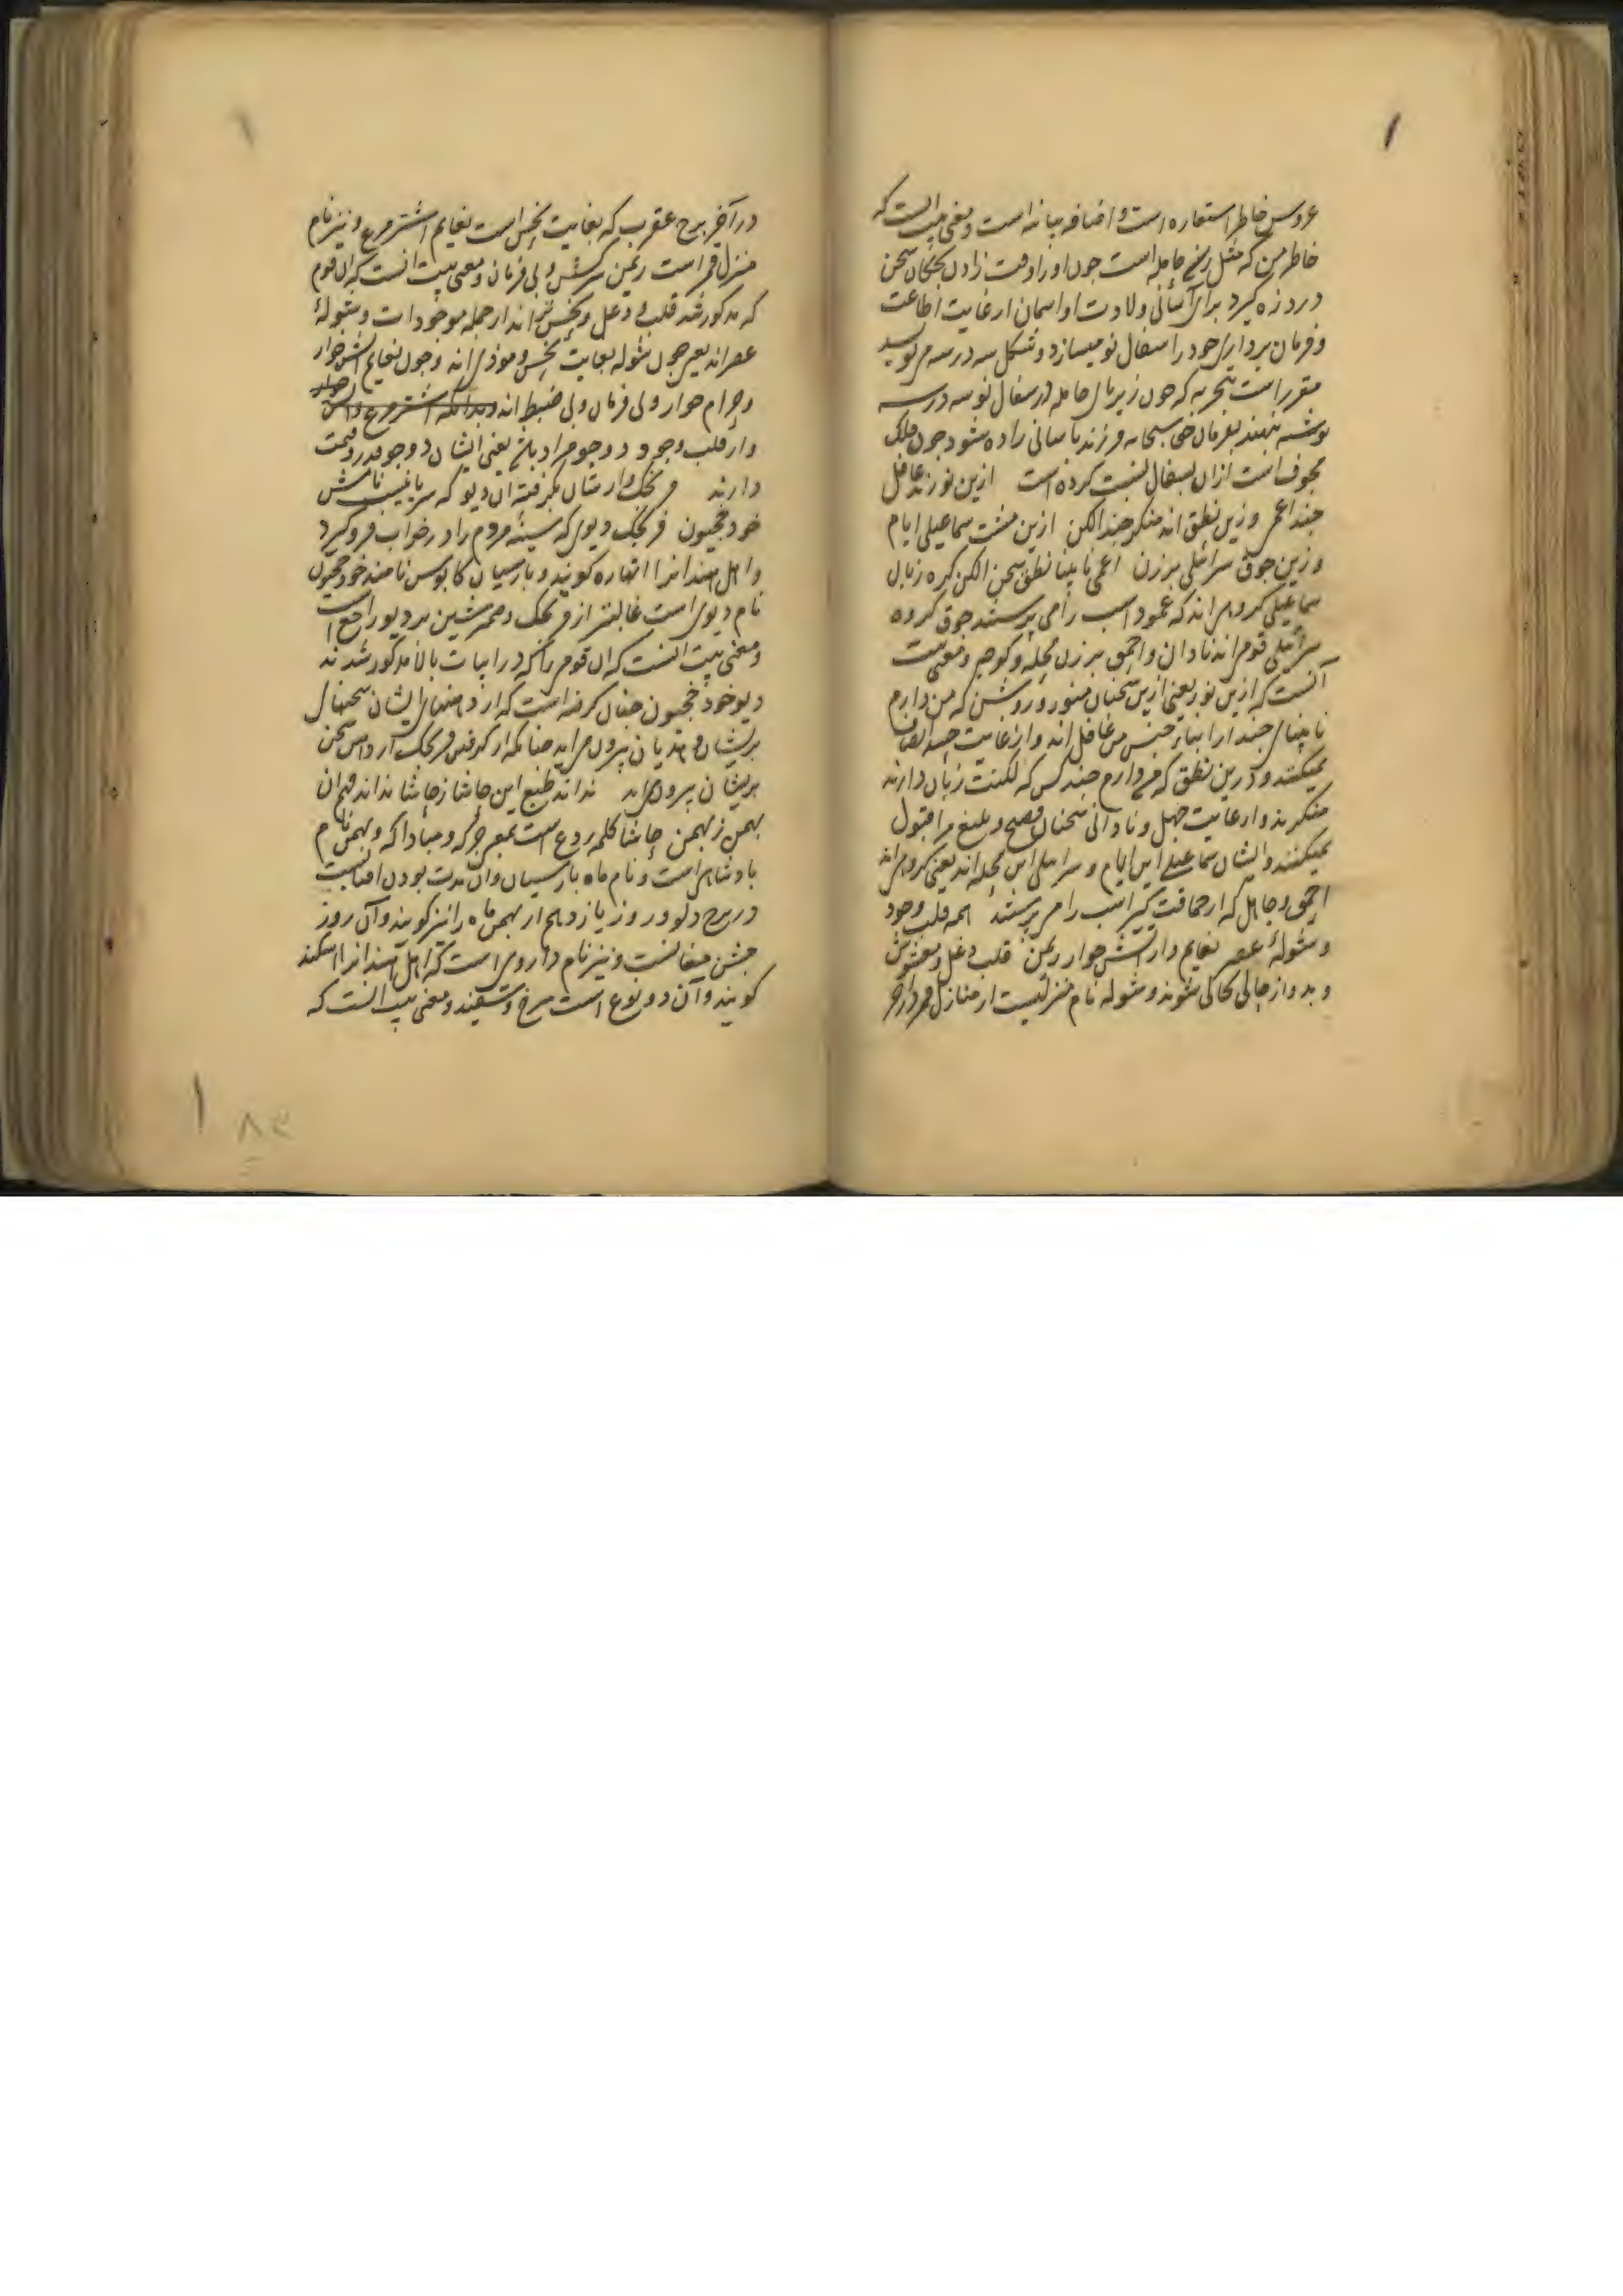 عروس خاطر استعاره است و اضافه بیانه است و معنی بیت انست که
خاطر من که مثل زنی حامله است جون او را وقت زادن بچکان سخن
درد زه کیرد برای آسانی ولادت او اسمان از غایت اطاعت
و فرمان برداری خود را سفال نو میسازد و شکل سه در سه می نویسد
مقرر است بتجربه که جون زیر پای حامله در سفال نو سه در سه
نوشته نهند بفرمان حق سبحانه فرزند باسانی زاده شود جون فلک
مجوف است ازان بسفال نسبت کرده است ازین نورند غافل
جند اعمی وزین نطق اند منکر جند الکن ازین مشت سماعیلی ایام
وزین جوق سرائیلی برزن اعمی نابینا نطق سخن الکن کره زبان
سماعیلی کروهی اند که عمود اسب را می پرستند جوق کروه
سرائیلی قومی اند نادان و احمق برزن محله و کوچه و معنی بیت
آنست که ازین نور یعنی ازین سخنان منور و روشن که من دارم
نابینای جند از ابنای جنس من غافل اند و از غایت حسد انصاف
نمیکنند و درین نطق که من دارم جند کس که لکنت زبان دارند
منکرند و از غایت جهل و نادانی سخنان فصیح و بلیغ مرا قبول
نمیکنند و ایشان سماعیلی این ایام و سرائیلی این محله اند یعنی کروهی اند
احمق و جاهل که از حماقت اسب را می پرستند همه قلب وجود
و شولهٔ عصر نعایم وار اتش خوار ریمن قلب دغل و مغشوش
و بد و از جائی بجائی شوند و شوله نام منزلیست از منازل قمر
در آخر برج عقرب که بغایت نحس است نعایم اشتر مرغ و نیز نام
منزل قمر است ریمن سرکش و بی فرمان و معنی بیت انست که ان قوم
که مذکور شد قلب و دغل و نحس تر اند از جمله موجودات و شولهٔ
عصر اند یعنی جون شوله بغایت نحس و موذی اند و جون نعایم اتش خوار
و حرام خوار و بی فرمان و بی ضبط اند و بدانکه اشتر مرغ
و از قلب وجود وجود مراد باشد یعنی ایشان وجود قدر و قیمت
دارند فرنجک وارشان بکرفته ان دیو که سریانیست نامش
خود خجیون فرنجک دیوی که سینه مردم را در خواب فرو کیرد
و اهل هند انرا انهاره کویند و پارسیان کابوس نامند خود خجیون
نام دیوی است غالبتر از فرنجک و ضمیر شین بر دیو راجع است
و معنی بیت انست که ان قوم را که در ابیات بالا مذکور شدند
دیو خود خجیون جنان کرفته است که از دهنهای ایشان سخنهای
پریشان و هذیان بیرون می اید جنانکه از کرفتن فرنجک از دهن سخن
پریشان بیرون می اید نداند طبع این حاشا ز حاشا نداند فهم ان
بهمن ز بهمن حاشا کلمه ردع است بمعنی هرکز و مبادا که و بهمن نام
پادشاهی است و نام ماه پارسیان و ان مدت بودن افتابست
در برج دلو و روز یازدهم از بهمن ماه را نیز کویند و آن روز
جشن مغانست و نیز نام داروی است که اهل هند انرا اسکند
کویند و آن دو نوع است سرخ و سفید و معنی بیت انست که